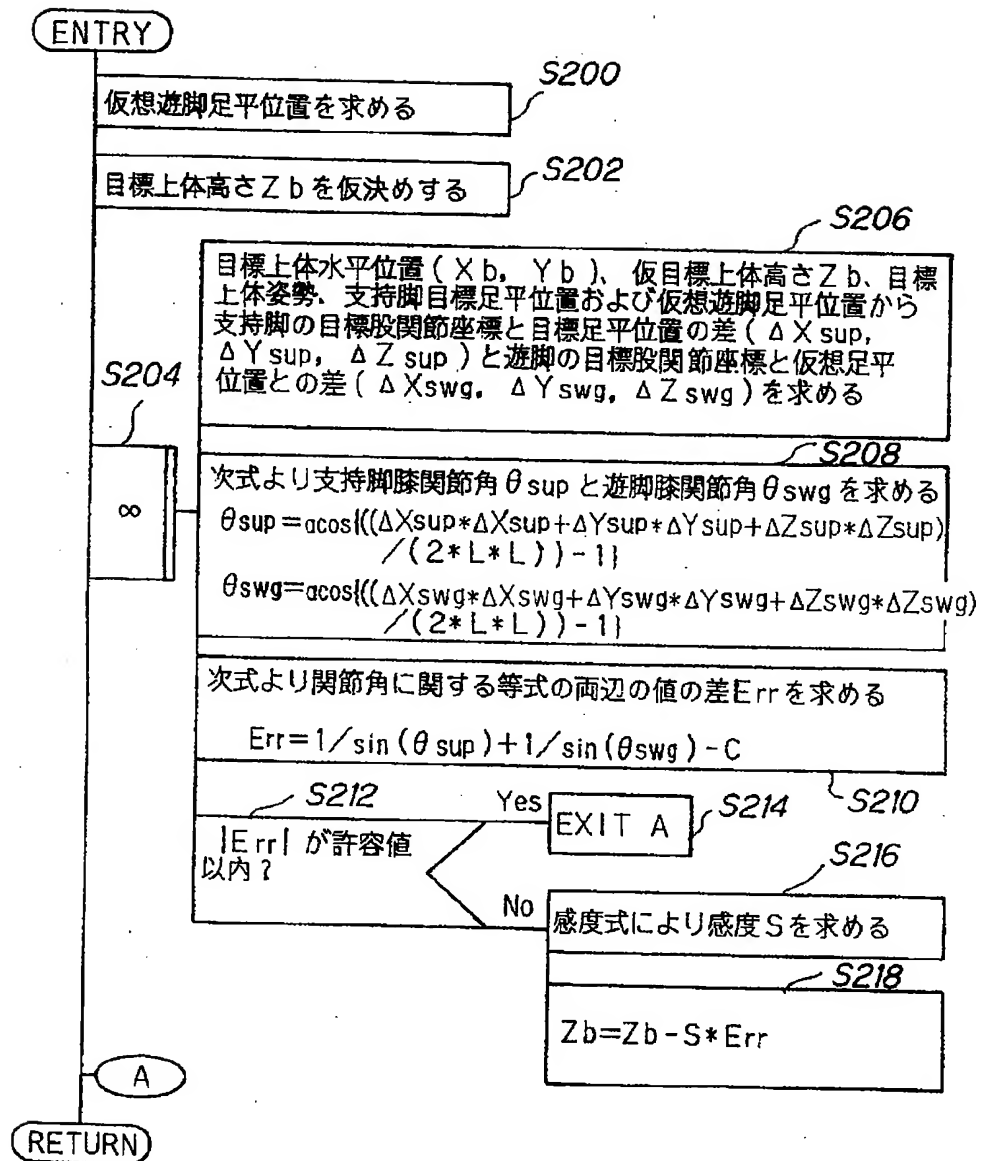 ENTRY
S200
仮想遊脚足平位置を求める
S202
目標上体高さZbを仮決めする
S206
目標上体水平位置(Xb, Yb)、仮目標上体高さZb、目標
上体姿勢、支持脚目標足平位置および仮想遊脚足平位置から
支持脚の目標股関節座標と目標足平位置の差(ΔXsup,
ΔYsup, ΔZsup)と遊脚の目標股関節座標と仮想足平
位置との差(ΔXswg, ΔYswg, ΔZswg)を求める
S204
∞
S208
次式より支持脚膝関節角θsupと遊脚膝関節角θswgを求める
θsup=acos{((ΔXsup*ΔXsup+ΔYsup*ΔYsup+ΔZsup*ΔZsup)
/(2*L*L))-1}
θswg=acos{((ΔXswg*ΔXswg+ΔYswg*ΔYswg+ΔZswg*ΔZswg)
/(2*L*L))-1}
次式より関節角に関する等式の両辺の値の差Errを求める
Err=1/sin(θsup)+1/sin(θswg)-C
S210
S212
|Err|が許容値
以内?
Yes
EXIT A
S214
No
S216
感度式により感度Sを求める
S218
Zb=Zb-S*Err
A
RETURN